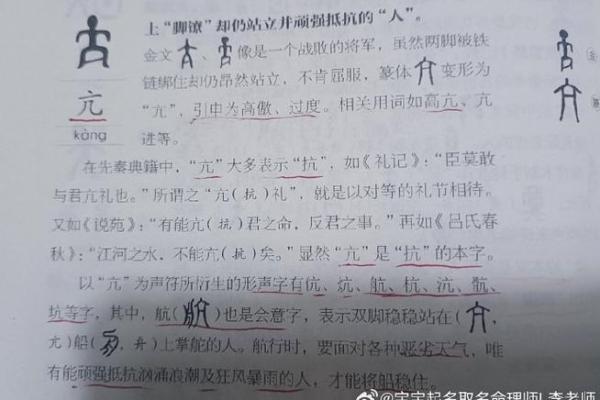 上“脚镣”却仍站立并顽强抵抗的“人”。
金文、像是一个战败的将军，虽然两脚被铁
链绑住却仍昂然站立，不肯屈服，篆体变形为
“亢”，引申为高傲、过度。相关用词如高亢、亢
进等。
亢
kàng
在先秦典籍中，“亢”大多表示“抗”，如《礼记》：“臣莫敢
与君亢礼也。”所谓之“亢(抗)礼”，就是以对等的礼节相待。
又如《说苑》：“有能亢(抗)君之命，反君之事。”再如《吕氏春
秋》：“江河之水，不能亢(抗)矣。”显然“亢”是“抗”的本字。
以“亢”为声符所衍生的形声字有伉、炕、航、杭、沆、骯、
坑等字，其中，航()也是会意字，表示双脚稳稳站在(，
亢)船(，舟)上掌舵的人。航行时，要面对各种恶劣天气，唯
有能顽强抵抗汹涌浪潮及狂风暴雨的人，才能将船稳住。
@宝宝起名取名命理师L李老师